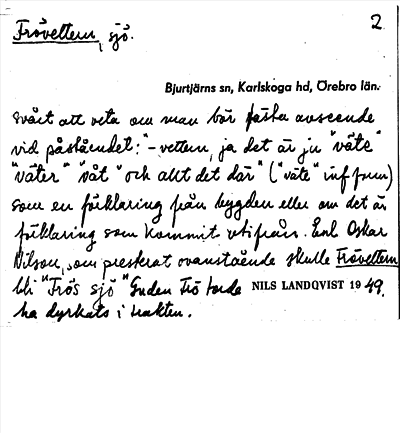 Frövettern, sjö.
2
Bjurtjärns sn, Karlskoga hd, Örebro län.
Svårt att veta om man bör fästa avseende
vid påståendet: "-vettern, ja det är ju "väte"
"väter" "våt" och allt det där" ("väte" inf. form)
som en förklaring från bygden eller om det är
förklaring som kommit utifrån. Enl Oskar
Nilson, som presterat ovanstående skulle Frövettern
bli "Frös sjö" Guden Frö torde
NILS LANDQVIST 1949.
ha dyrkats i trakten.